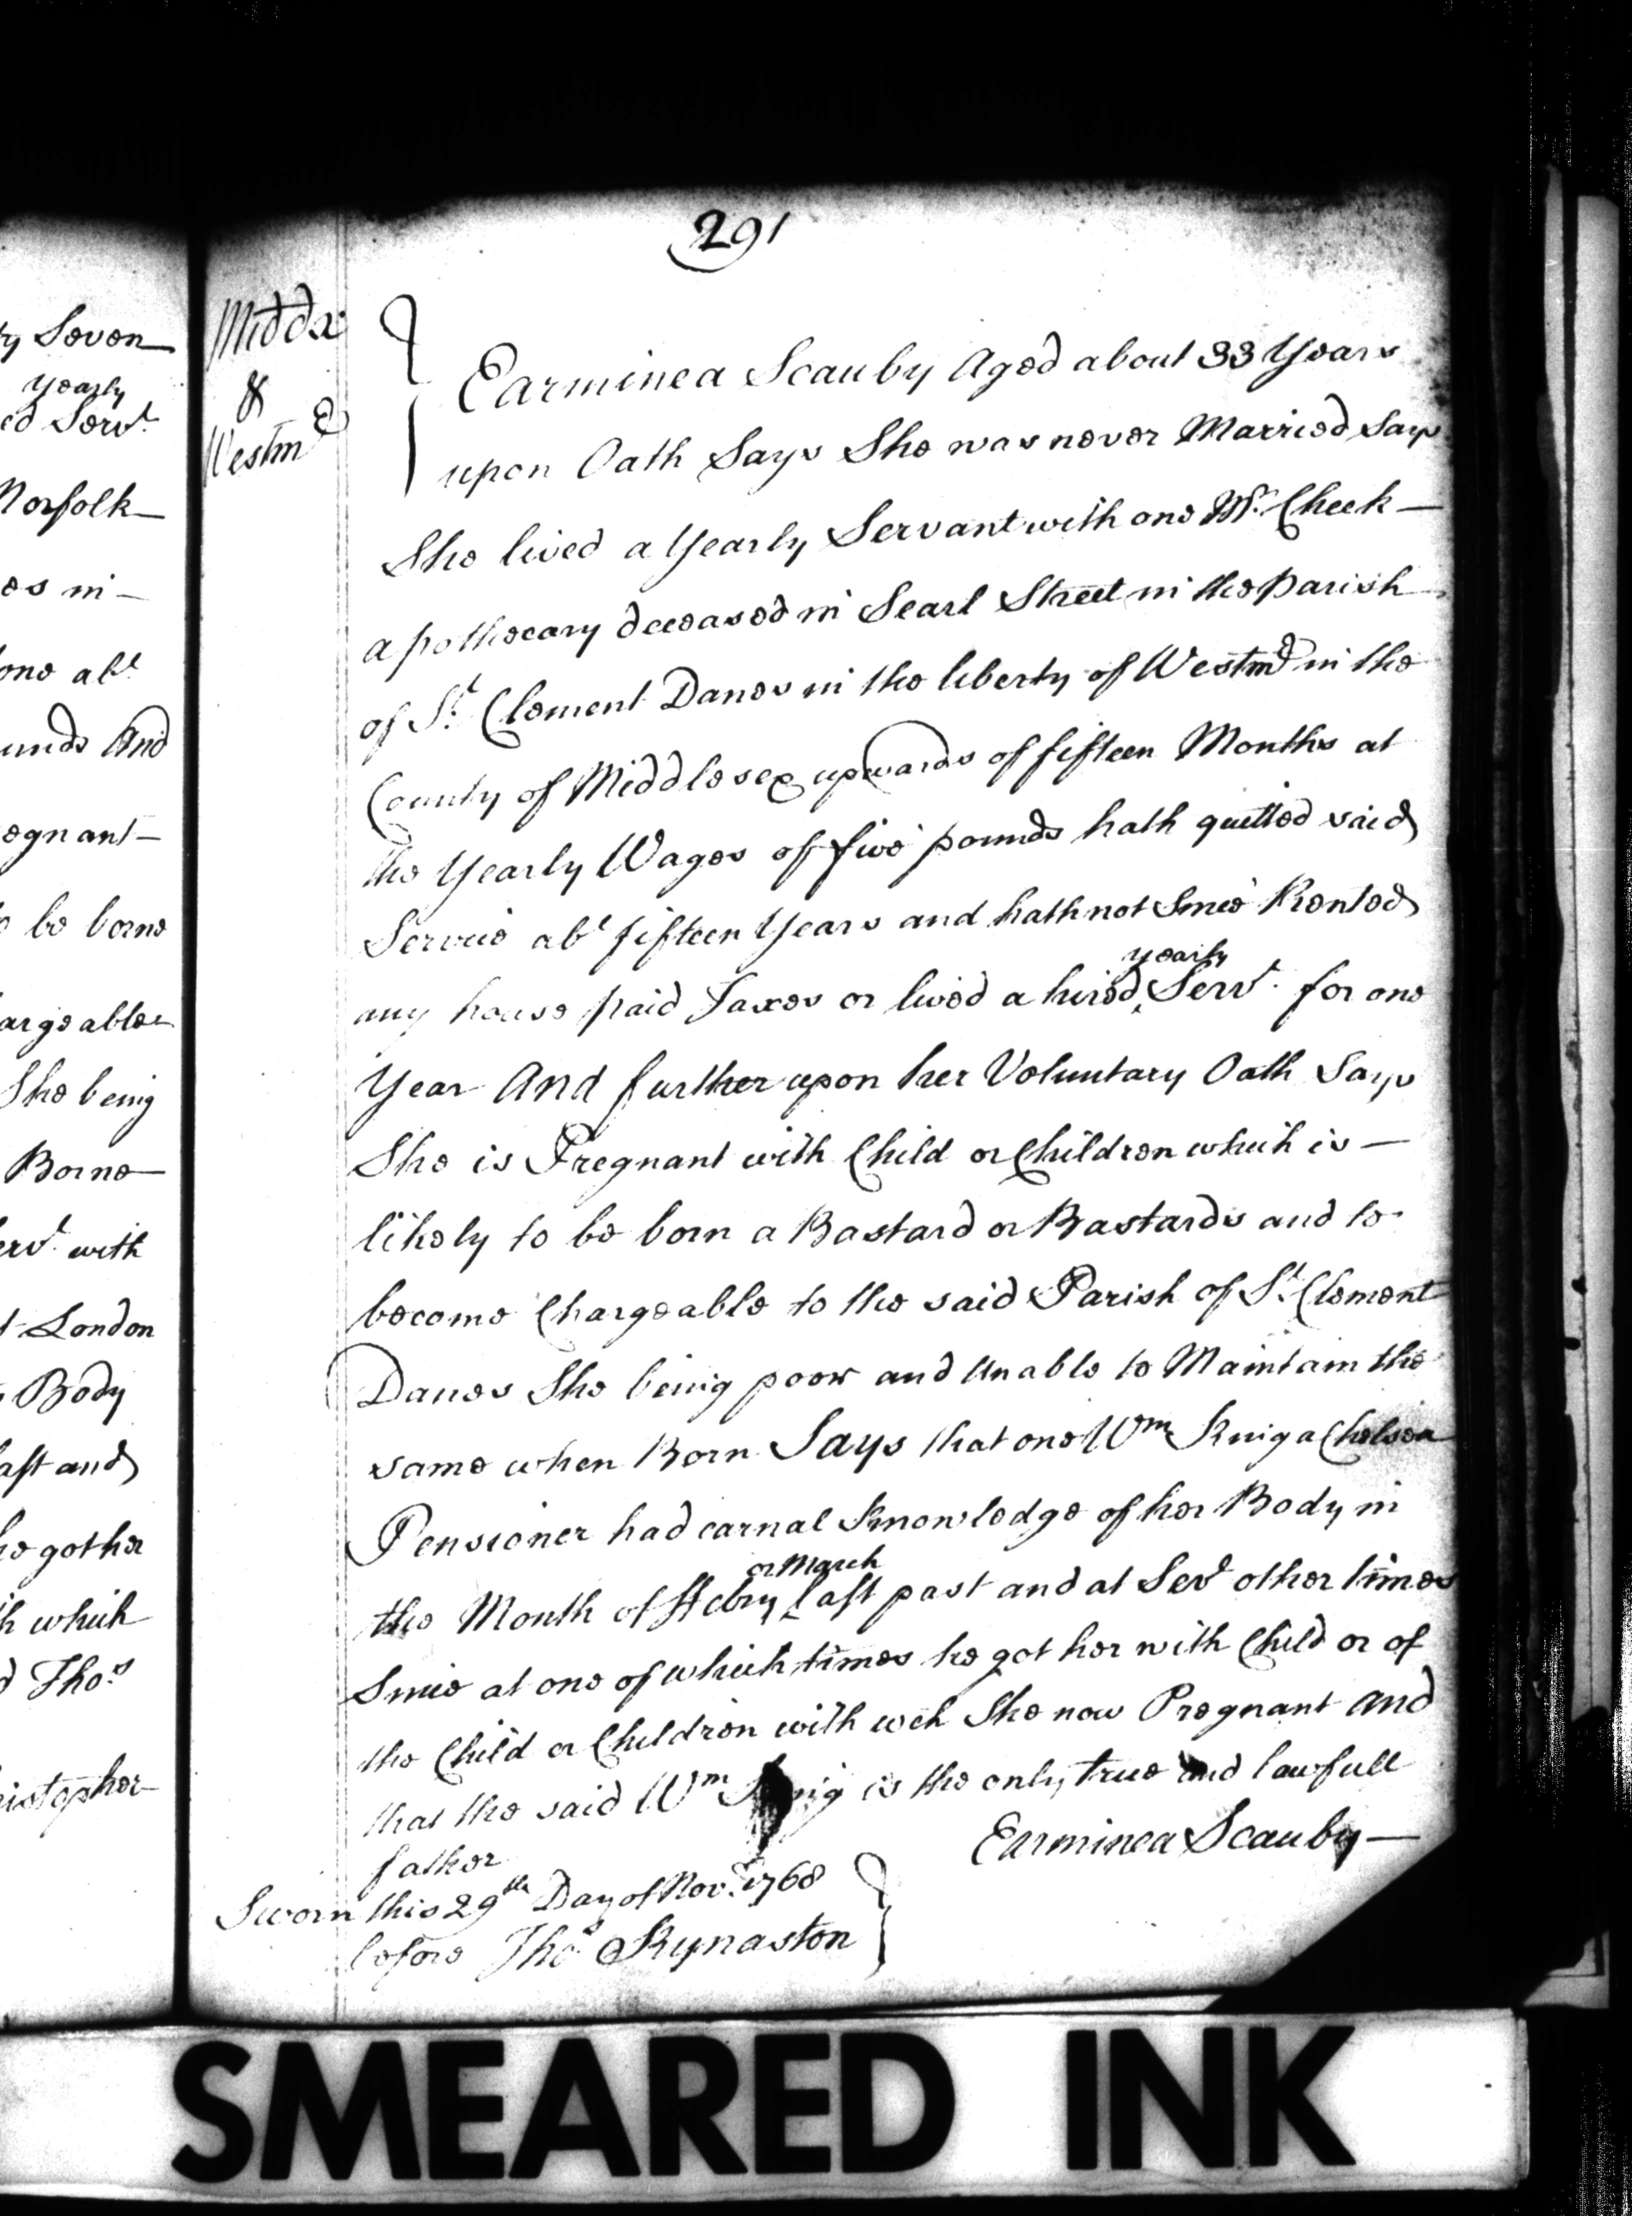 291
y Seven
yearly
ed Servt.
Norfolk
es in
one abt.
unds And
egnant
o be borne
argeable
She being
Borne
ervt. with
t London
Body
last and
he got her
h which
d Thos.
istopher
Middx
&
Westmr
Earminea Scauby Aged about 33 Years
upon Oath Says She was never Married Says
She lived a Yearly Servant with one Mr. Cheek
apothecary deceased in Searl Street in the Parish
of St. Clement Danes in the liberty of Westmr in the
County of Middlesex upwards of fifteen Months at
the Yearly Wages of five pounds hath quitted said
Service abt fifteen Years and hath not Since Rented
any house paid Taxes or lived a hired yearly Servt. for one
Year And further upon her Voluntary Oath Says
She is Pregnant with Child or Children which is
likely to be born a Bastard or Bastards and to
become Chargeable to the said Parish of St. Clement
Danes She being poor and Unable to Maintain the
same when Born Says that one Wm King a Chelsea
Pensioner had carnal Knowledge of her Body in
the Month of Febry or March last past and at Sevl other times
Since at one of which times he got her with Child or of
the Child or Children with wch She now Pregnant And
that the said Wm King is the only true and lawfull
father
Earminea Scauby
Sworn this 29th Day of Novr. 1768
before Thos. Kynaston
SMEARED INK